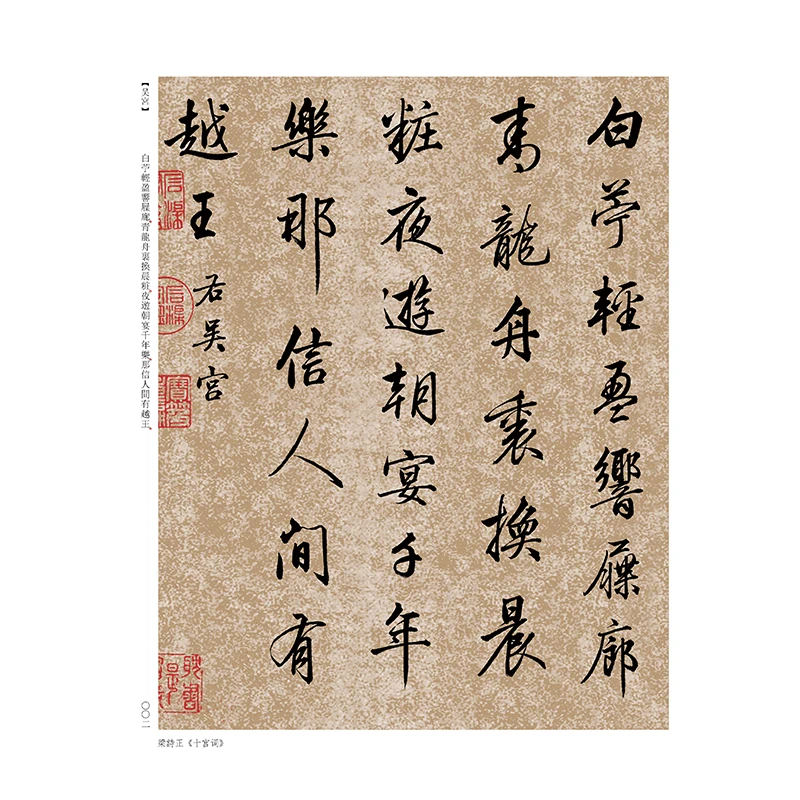 白苧輕盈響屧廊
青龍舟裏換晨
粧夜遊朝宴千年
樂那信人間有
越王
右吴宮
【吴宮】
白苧輕盈響屧廊青龍舟裏換晨粧夜遊朝宴千年樂那信人間有越王
〇〇二
梁詩正《十宮词》